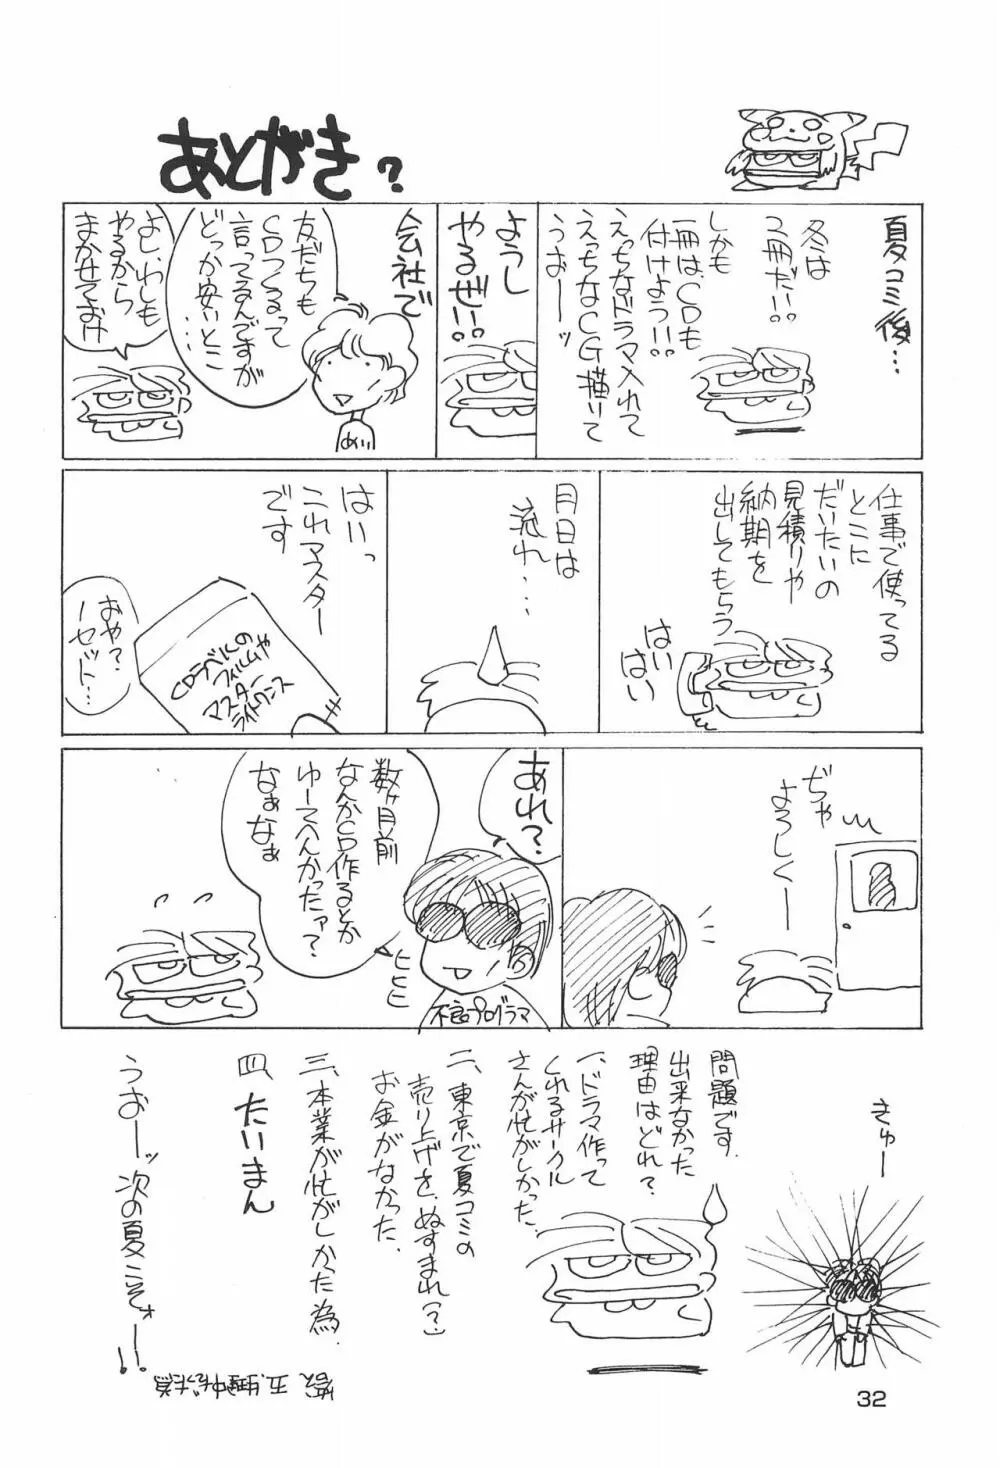 あとがき?
夏コミ後…
冬は
2冊だ!!
しかも
一冊は、CDも
付けよう!!
えっちなドラマ入れて
えっちなCG描いて
うおーッ
ようし
やるぜ!!
会社で
友だちも
CDつくるって
言ってるんですが
どっか安いとこ
…
めい
よし、わしも
やるから
まかせておけ
仕事で使ってる
とこに
だいたいの
見積りや
納期を
出してもらう
はい
はい
月日は
流れ…
はいっ
これマスター
です
CDラベルの
フィルムや
マスター
おや?
一セット…
ぢゃ
よろしくー
あれ?
数ヶ月前
なんかCD作るとか
ゆーてへんかったァ?
なぁなぁ
ヒヒヒ
不良プログラマ
問題です.
出来なかった
理由はどれ?
一、ドラマ作って
くれるサークル
さんが忙がしかった.
二、東京で夏コミの
売り上げを、ぬすまれ(?)
お金がなかった.
三、本業が忙がしかった為.
四、たいまん
うおーッ 次の夏こそォー!!
きゅー
32